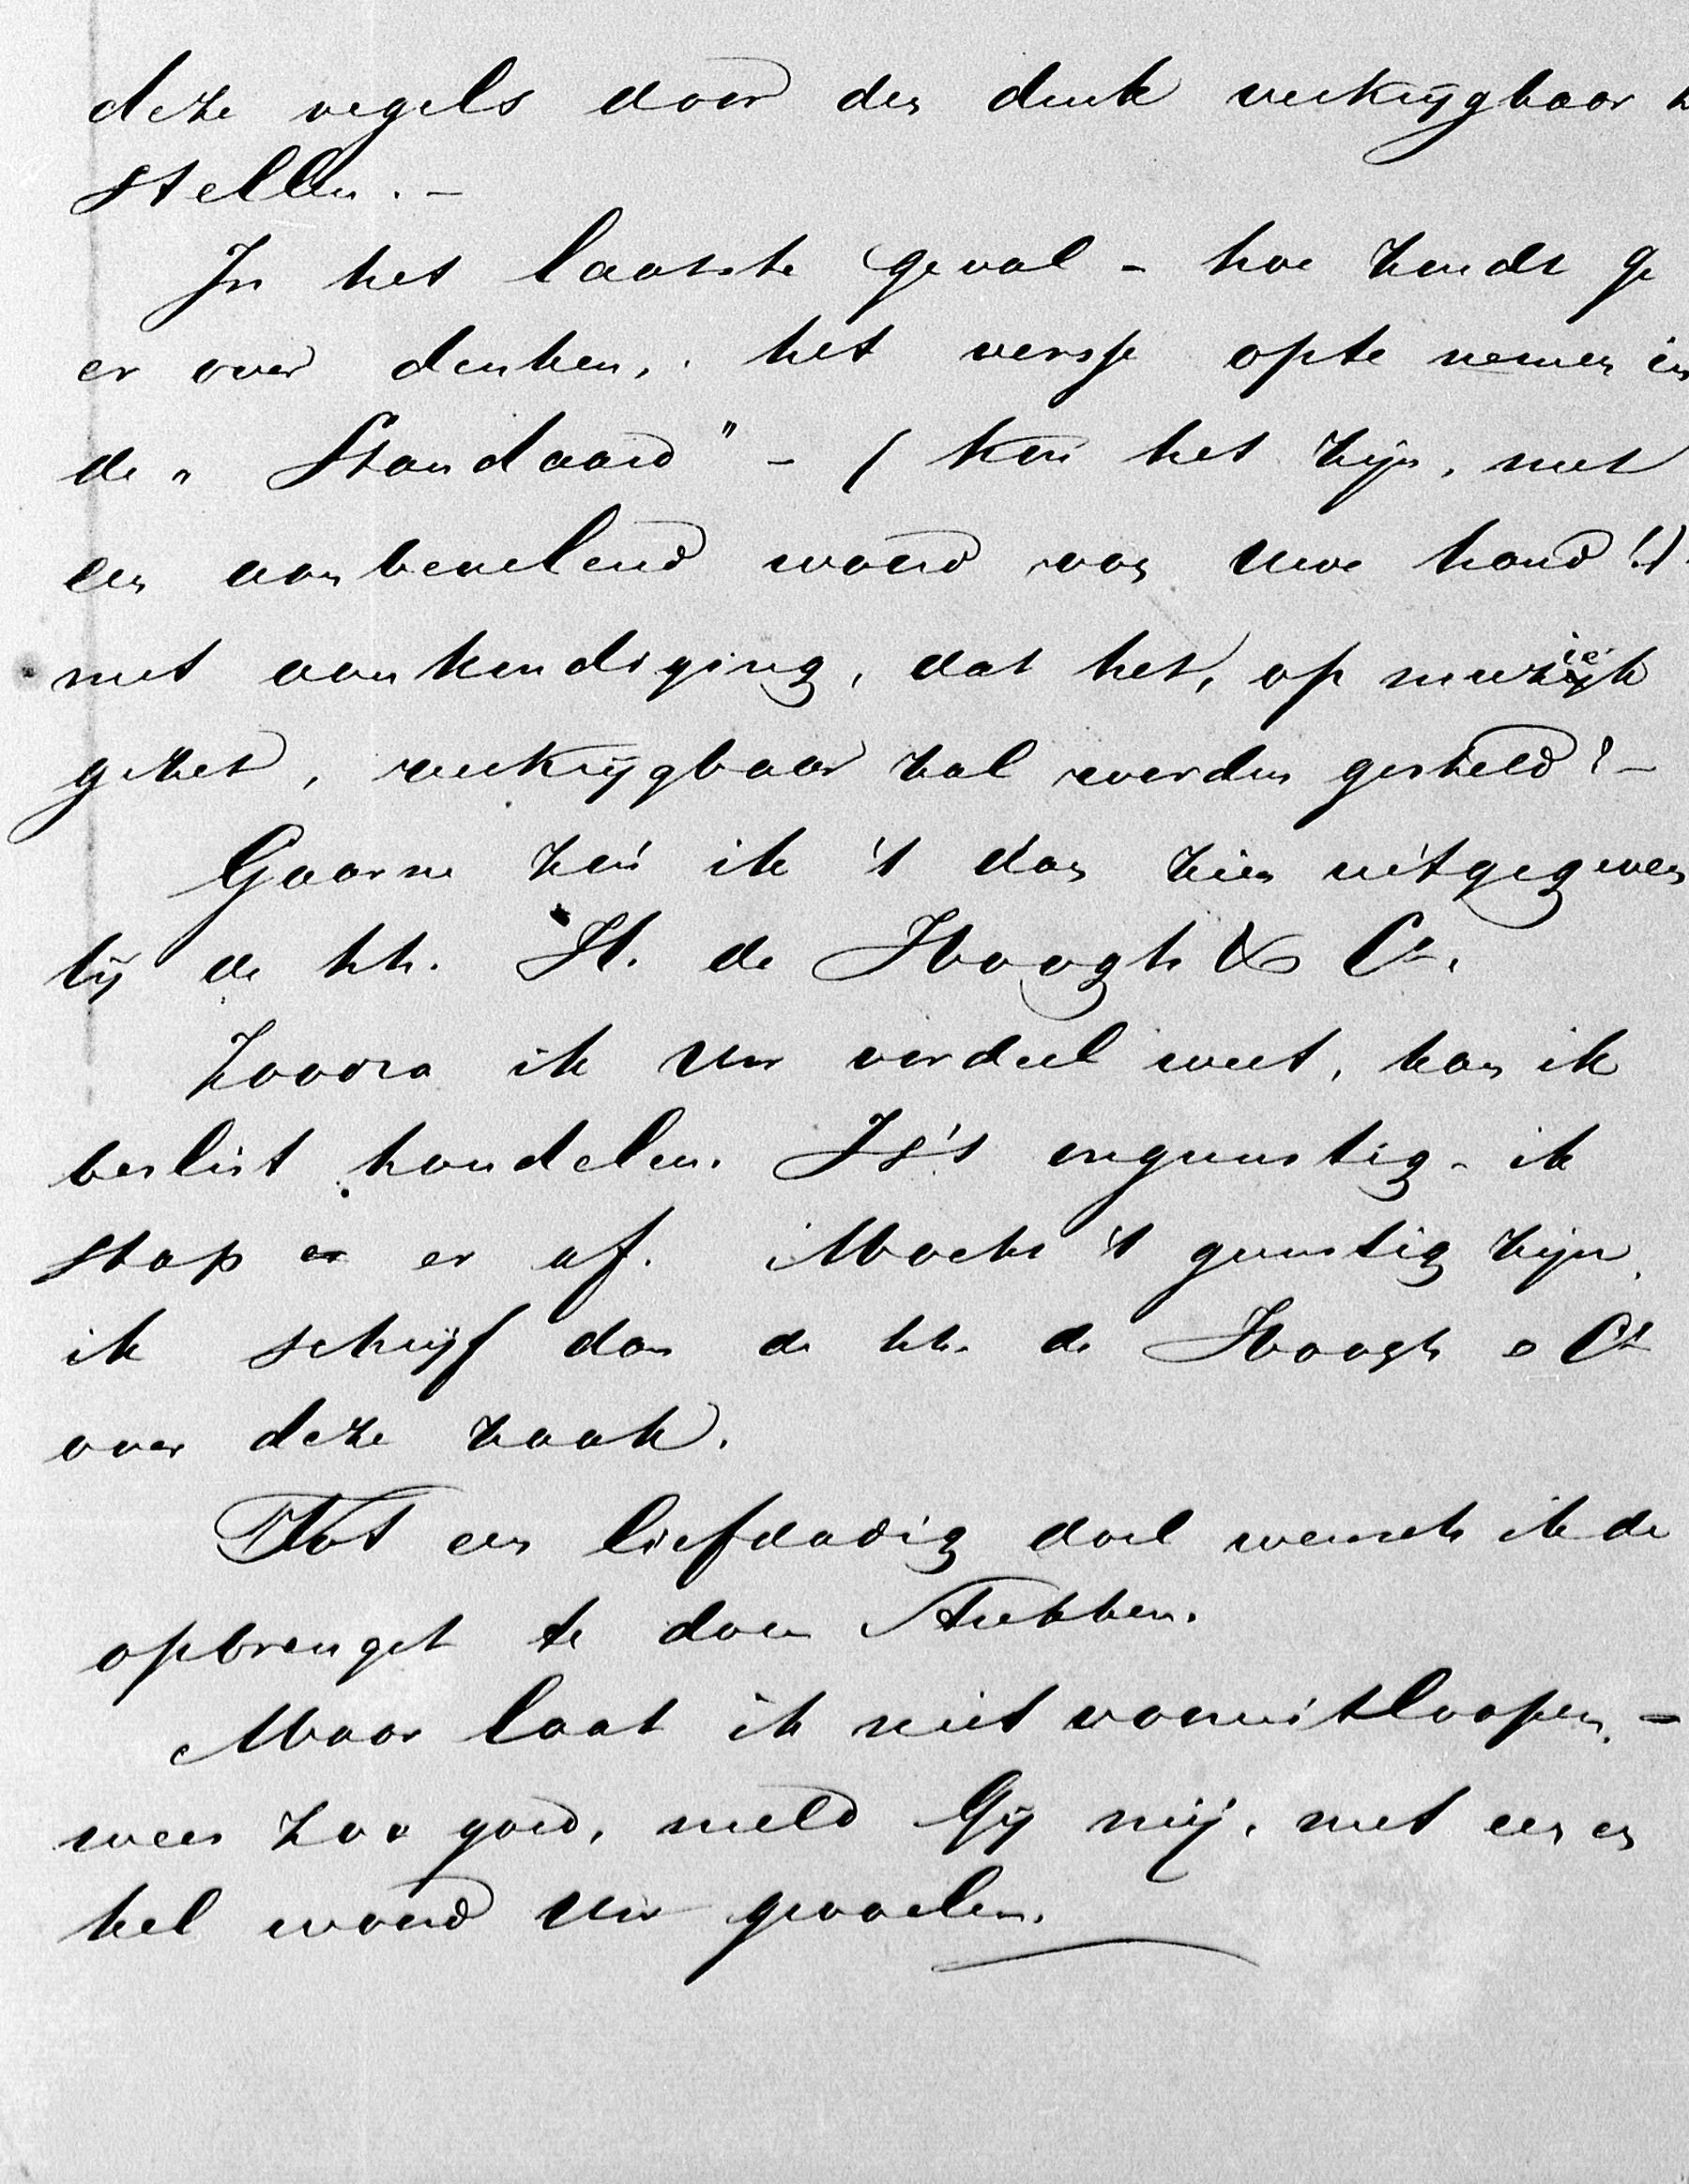 deze regels door den druk verkrijgbaar te
stellen. –
In het laatste geval – hoe zoudt ge
er over denken, het versje opte nemen in
de „Standaard” – (kon het zijn, met
een aanbevelend woord van Uwe hand!)
met aankondiging, dat het, op muziek
gezet, verkrijgbaar zal worden gesteld? –
Gaarne zou ik 't dan zien uitgegeven
bij de hh. H. de Hoogh & Co.
Zoodra ik Uw oordeel weet, kan ik
beslist handelen. Is 't ongunstig – ik
stap er af. Mocht 't gunstig zijn,
ik schrijf dan de hh. de Hoogh & Co
over deze zaak.
Tot een liefdadig doel wensch ik de
opbrengst te doen strekken.
Maar laat ik niet vooruitloopen. –
wees zoo goed, meld Gij mij, met een en
kel woord Uw gevoelen.